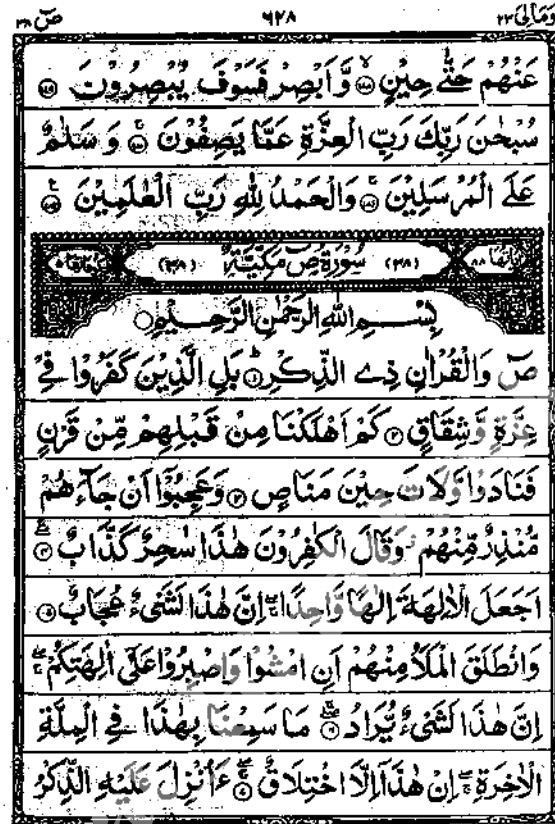 وَمَالِيَ ٢٣ ٦٢٨ صٓ ٣٨
عَنْهُمْ حَتّٰى حِيْنٍ ۙ﴿۱۷۸﴾ وَّاَبْصِرْ فَسَوْفَ يُبْصِرُوْنَ ﴿۱۷۹﴾
سُبْحٰنَ رَبِّكَ رَبِّ الْعِزَّةِ عَمَّا يَصِفُوْنَ ۚ﴿۱۸۰﴾ وَ سَلٰمٌ
عَلَى الْمُرْسَلِيْنَ ۚ﴿۱۸۱﴾ وَالْحَمْدُ لِلّٰهِ رَبِّ الْعٰلَمِيْنَ ﴿۱۸۲﴾
اٰيَاتُهَا ٨٨ (٣٨) سُوْرَةُ صٓ مَكِّيَّةٌ (٣٨) رُكُوْعَاتُهَا ٥
بِسْمِ اللّٰهِ الرَّحْمٰنِ الرَّحِيْمِ
صٓ وَالْقُرْاٰنِ ذِى الذِّكْرِ ؕ﴿۱﴾ بَلِ الَّذِيْنَ كَفَرُوْا فِىْ
عِزَّةٍ وَّشِقَاقٍ ﴿۲﴾ كَمْ اَهْلَكْنَا مِنْ قَبْلِهِمْ مِّنْ قَرْنٍ
فَنَادَوْا وَّلَاتَ حِيْنَ مَنَاصٍ ﴿۳﴾ وَعَجِبُوْۤا اَنْ جَآءَهُمْ
مُّنْذِرٌ مِّنْهُمْ ؗ وَقَالَ الْكٰفِرُوْنَ هٰذَا سٰحِرٌ كَذَّابٌ ۖۚ﴿۴﴾
اَجَعَلَ الْاٰلِهَةَ اِلٰهًا وَّاحِدًا ۖۚ اِنَّ هٰذَا لَشَىْءٌ عُجَابٌ ﴿۵﴾
وَانْطَلَقَ الْمَلَاُ مِنْهُمْ اَنِ امْشُوْا وَاصْبِرُوْا عَلٰٓى اٰلِهَتِكُمْ ۖۚ
اِنَّ هٰذَا لَشَىْءٌ يُّرَادُ ۖۚ﴿۶﴾ مَا سَمِعْنَا بِهٰذَا فِى الْمِلَّةِ
الْاٰخِرَةِ ۖۚ اِنْ هٰذَاۤ اِلَّا اخْتِلَاقٌ ۖۚ﴿۷﴾ ءَاُنْزِلَ عَلَيْهِ الذِّكْرُ